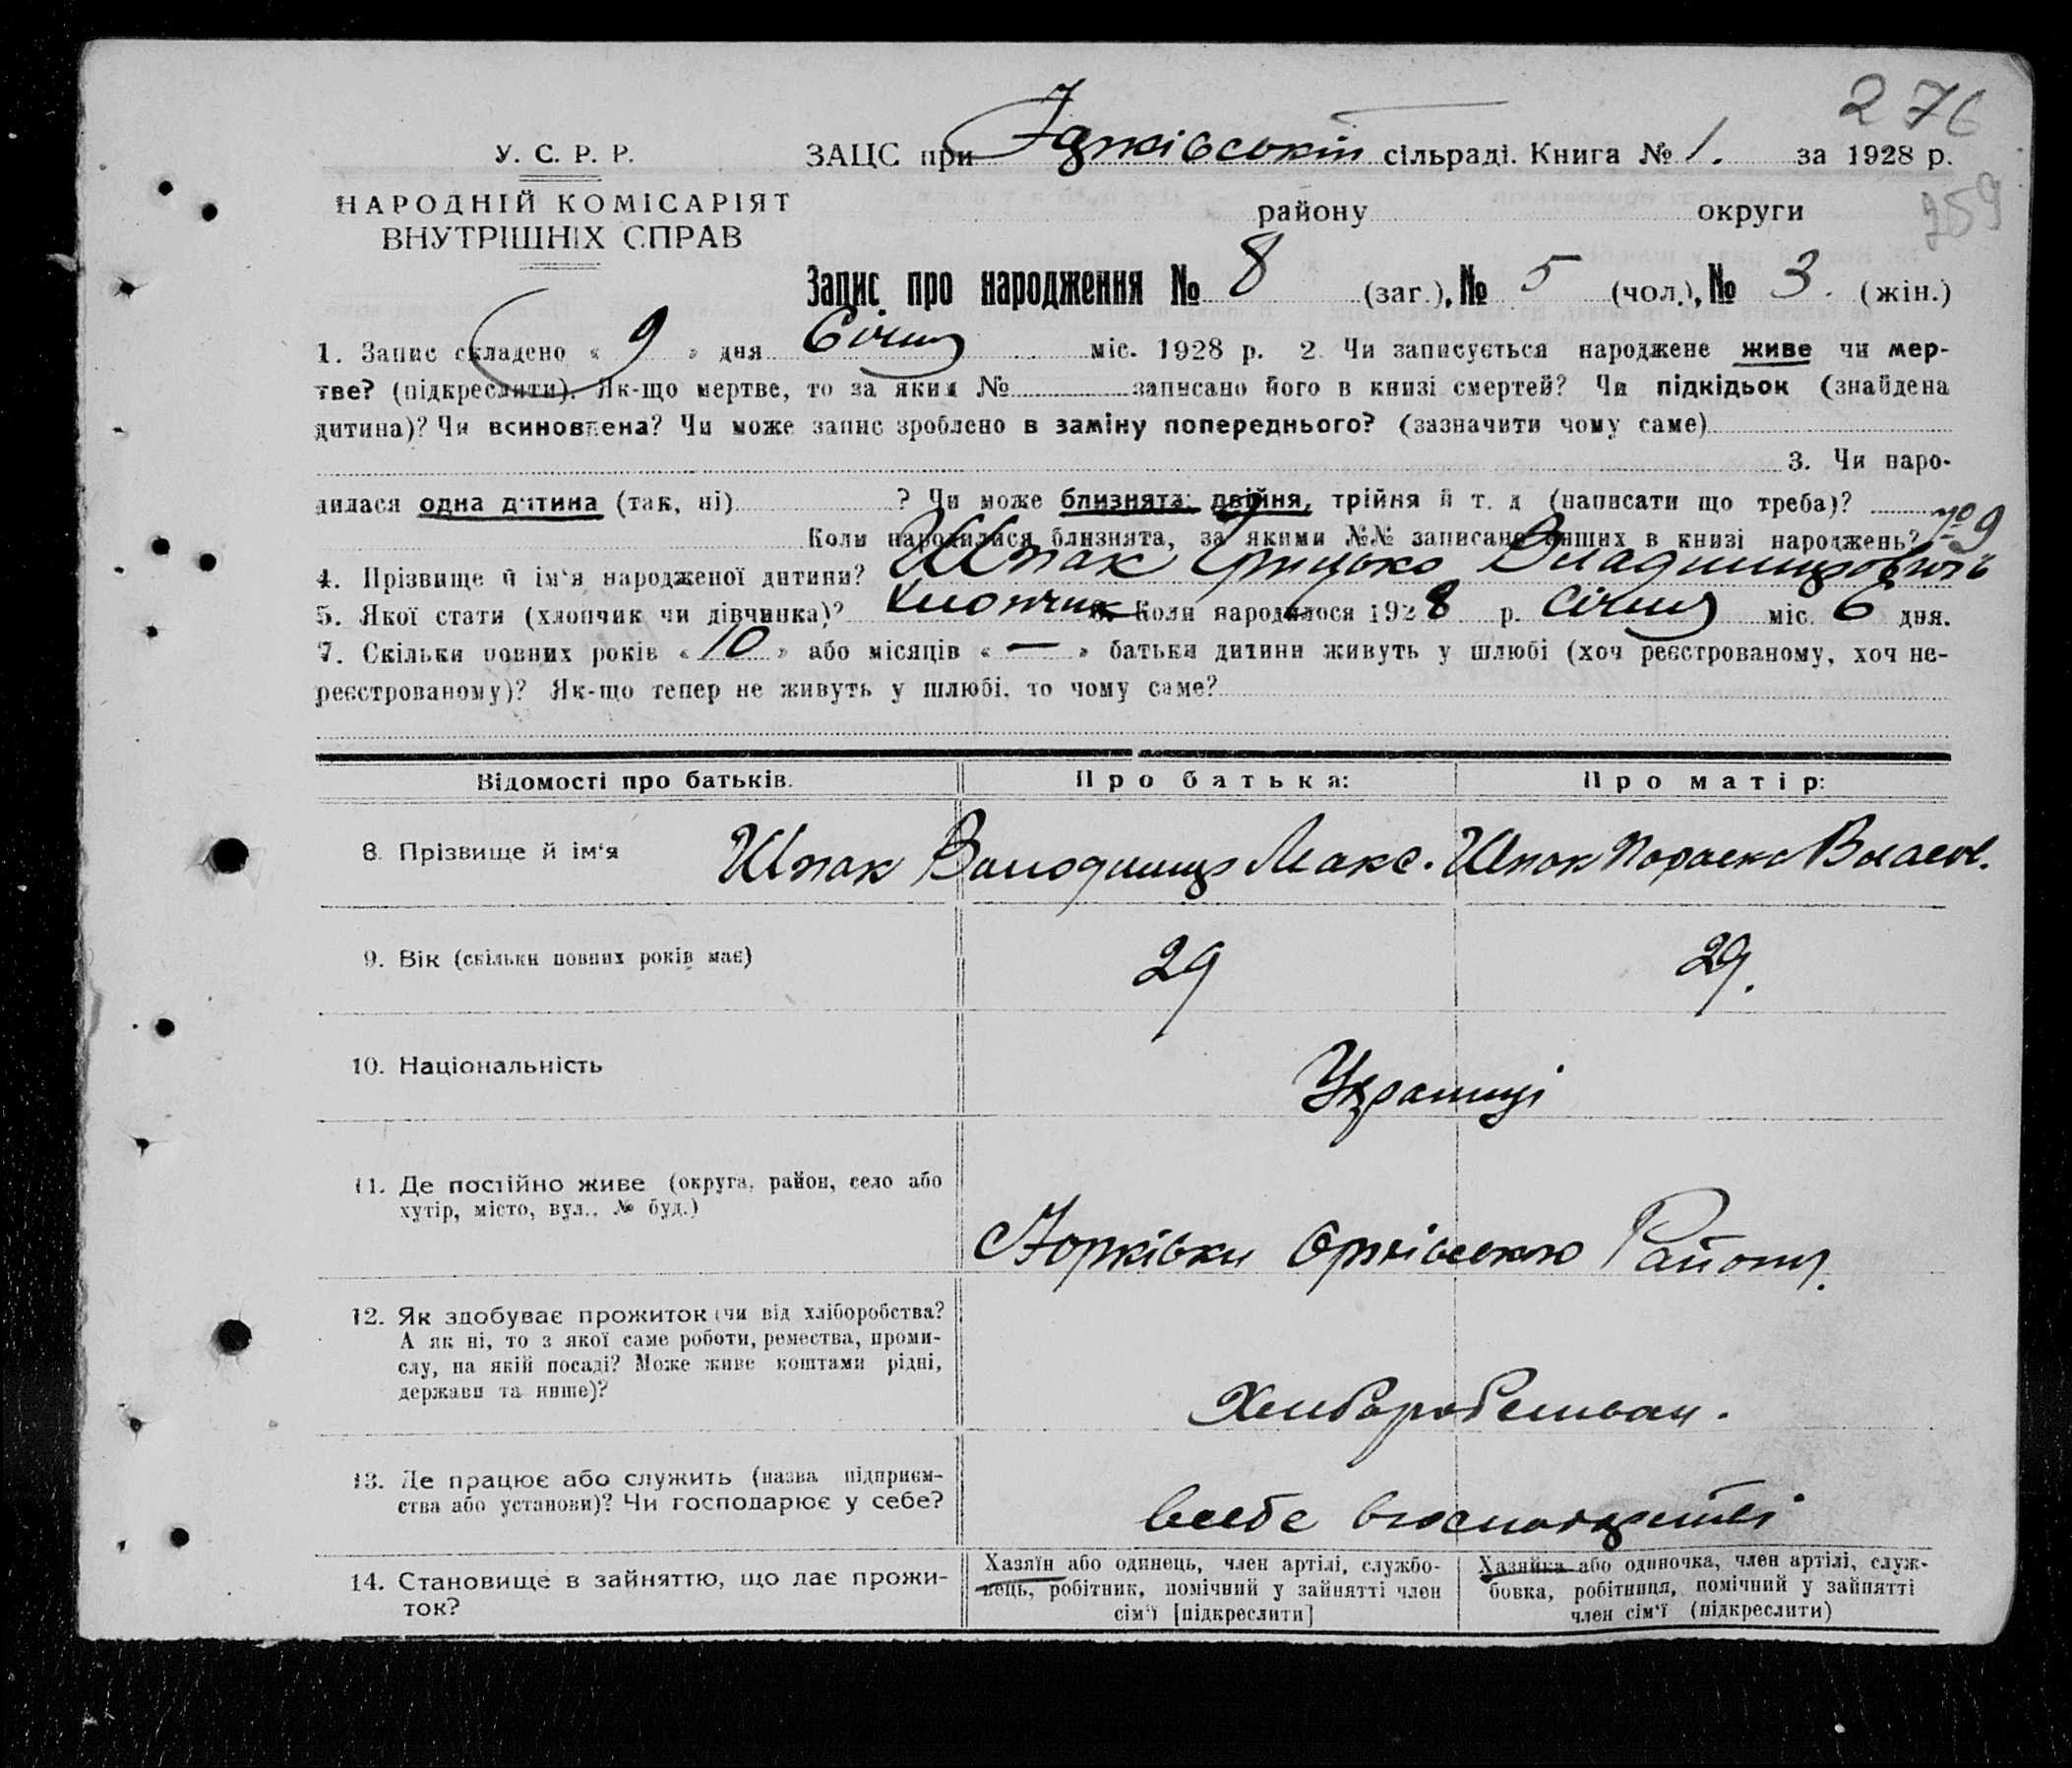 276
У. С. Р. Р.
ЗАЦС при сільраді. Книга № 1. за 1928 р.
259
НАРОДНІЙ КОМІСАРІЯТ
ВНУТРІШНІХ СПРАВ
району округи
Запис про народження № 8 (заг.), № 5 (чол.), № 3. (жін.)
1. Запис складено « 9 » дня Січня міс. 1928 р. 2 Чи записується народжене живе чи мер-
тве? (підкреслити). Як-що мертве, то за яким № записано його в книзі смертей? Чи підкідьок (знайдена
дитина)? Чи всиновлена? Чи може запис зроблено в заміну попереднього? (зазначити чому саме)
3. Чи наро-
дилася одна дитина (так, ні) ? Чи може близнята: двійня, трійня й т. д (написати що треба)?
Коли народилися близнята, за якими №№ записано инших в книзі народжень? № 9
4. Прізвище й ім'я народженої дитини? Шпак Грицько
5. Якої стати (хлопчик чи дівчинка)? Хлопчик 6. Коли народилося 1928 р. Січня міс. 6 дня.
7. Скільки повних років « 10 » або місяців « — » батьки дитини живуть у шлюбі (хоч реєстрованому, хоч не-
реєстрованому)? Як-що тепер не живуть у шлюбі, то чому саме?
Відомості про батьків. Про батька: Про матір:
8. Прізвище й ім'я Шпак Володимир Макс. Шпак Параска Власов.
9. Вік (скільки повних років має) 29 29.
10. Національність Українці
11. Де постійно живе (округа, район, село або
хутір, місто, вул., № буд.)
Району.
12. Як здобуває прожиток (чи від хліборобства?
А як ні, то з якої саме роботи, ремества, проми-
слу, на якій посаді? Може живе коштами рідні,
держави та инше)?
13. Де працює або служить (назва підприєм-
ства або установи)? Чи господарює у себе?
14. Становище в зайняттю, що дає прожи-
ток?
Хазяїн або одинець, член артілі, службо-
вець, робітник, помічний у зайнятті член
сім'ї [підкреслити]
Хазяйка або одиночка, член артілі, служ-
бовка, робітниця, помічний у зайнятті
член сім'ї (підкреслити)